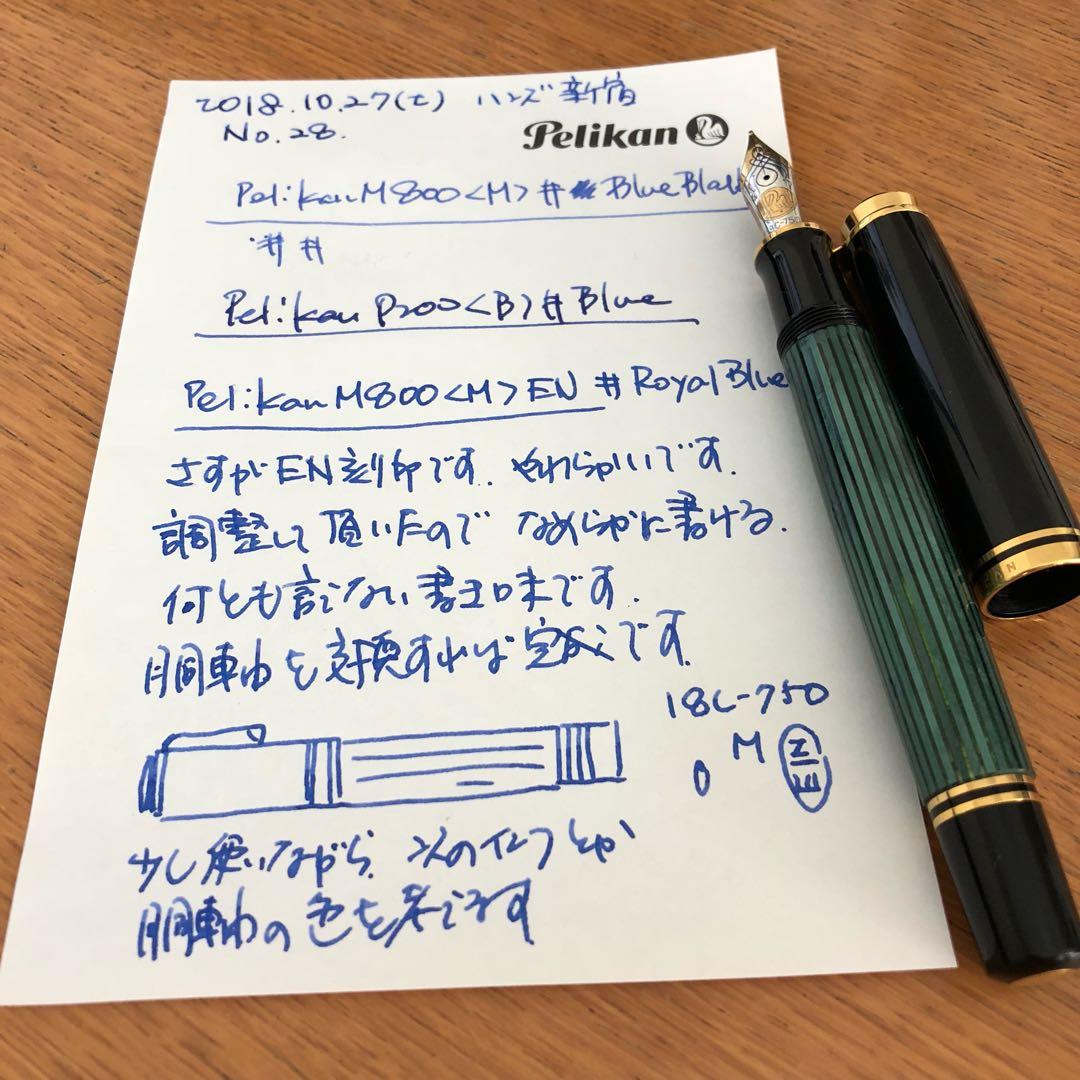 2018.10.27(土) ハンズ新宿
No.28.
Pelikan
Pelikan M800<M> # BlueBla
# #
Pelikan P200<B> # Blue
Pelikan M800<M> EN # Royal Blue
さすがEN刻印です. やわらかいです.
調整して頂いたので なめらかに書ける.
何とも言えない書き味です.
胴軸を交換すれば完成です.
18C-750
M
O
EN
少し使いながら. 次のインクとか
胴軸の色を考えます